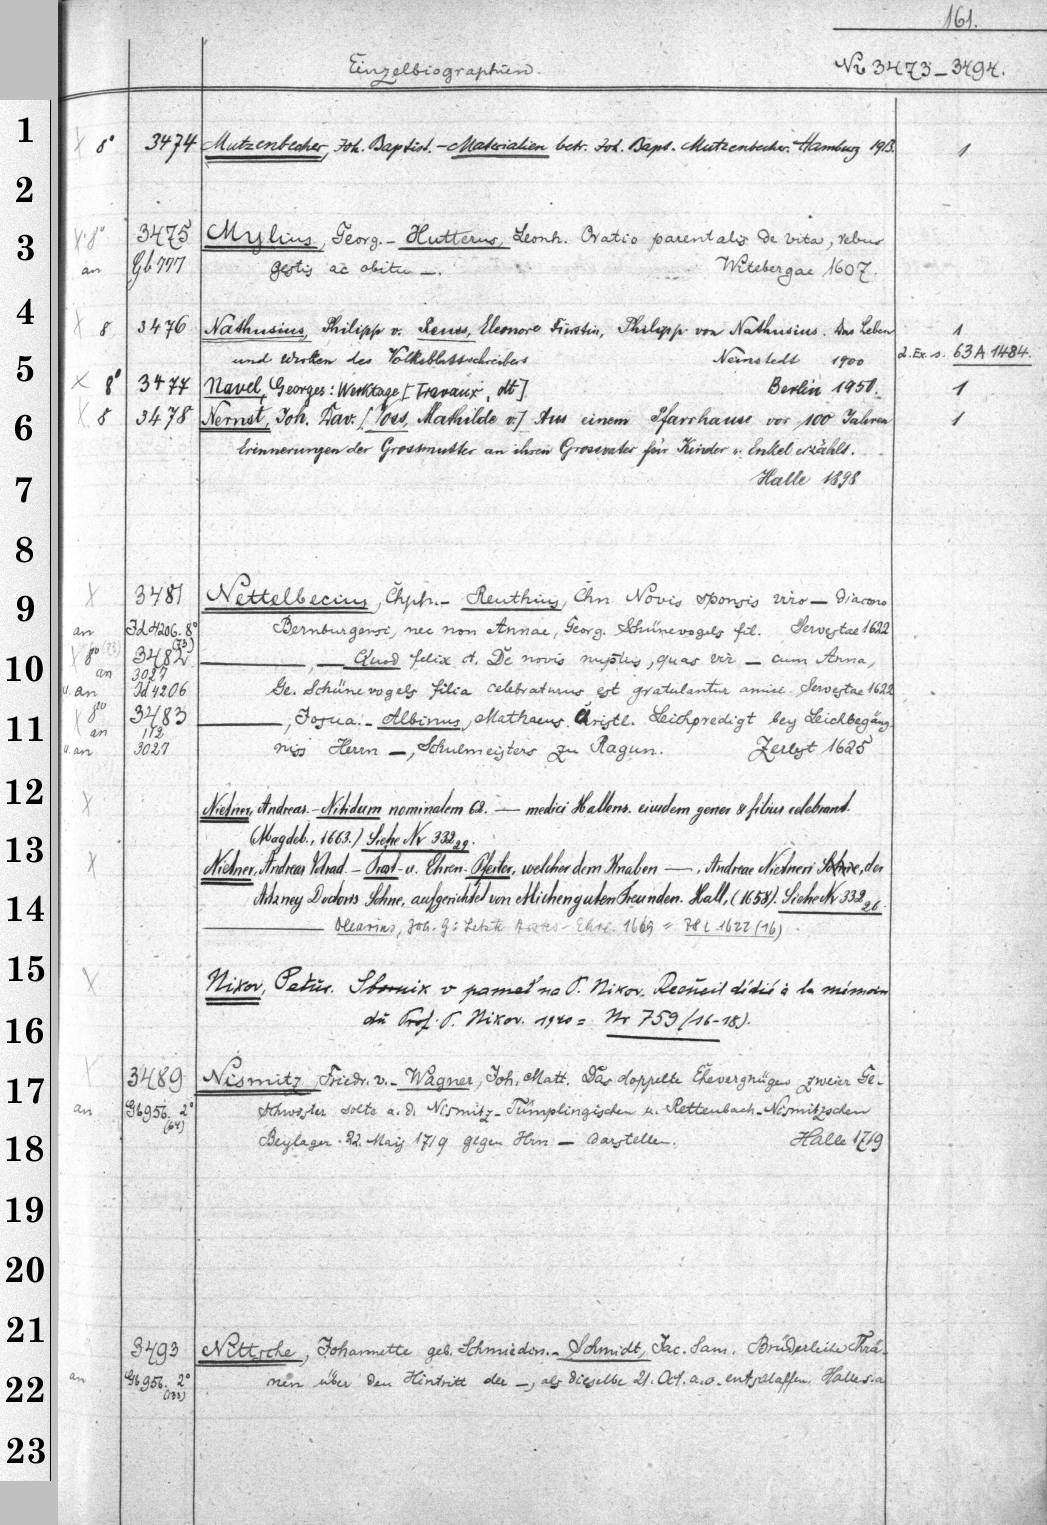 161.
Einzelbiographien.
No 3473–3494.
1
X 8° 3474 Mutzenbecher, Joh. Baptist. – Materialien betr. Joh. Bapt. Mutzenbecher. Hamburg 1913. 1
2
3
X 8° 3475 Mylius, Georg. – Hutterus, Leonh. Oratio parentalis de vita, rebus
an Gb 777 gestis ac obitu –. Witebergae 1607.
4
X 8 3476 Nathusius, Philipp v. Reuss, Eleonore Fürstin, Philipp von Nathusius. Das Leben 1
und Wirken des Volksblattschreibers Neinstedt 1900 2. Ex. s. 63 A 1484.
5
X 8° 3477 Navel, Georges: Werktage [Travaux, dt]. Berlin 1950. 1
6
X 8 3478 Nernst, Joh. Dav. [Voss, Mathilde v.] Aus einem Pfarrhause vor 100 Jahren 1
Erinnerungen der Grossmutter an ihren Grossvater für Kinder u. Enkel erzählt.
7
Halle 1898
8
9
X 3481 Nettelbecius, Chph. – Reuthius, Chn. Novis sponsis viro – diacono
an Id 4206. 8° (73) Bernburgensi, nec non Annae, Georg. Schünevogels fil. Servestae 1622
10
X 8° 3482 –, – Quod felix et. De novis nuptiis, quas vir – cum Anna,
an 3027
u. an Id 4206 Ge. Schünevogels filia celebraturus est gratulantur amici. Servestae 1622
11
X 8° 3483 –, Josua. – Albinus, Mathaeus. Christl. Leichpredigt bey Leichbegäng-
an 112
u. an 3027 niss Herrn –, Schulmeisters zu Ragun. Zerbst 1625
12
X Nietner, Andreas. – Nitidum nominalem 68. – medici Hallens. eiusdem gener & filius celebrant.
(Magdeb., 1663.) Siehe Nr 332 29.
13
X Nietner, Andreas Volrad. – Trost- v. Ehren-Pfeiler, welcher dem Knaben –, Andreae Nietneri Sohne, der
14
Artzney Doctoris Sohne, aufgerichtet von etlichen guten Freunden. Hall, (1658). Siehe Nr 332 26.
– Olearius, Joh. G: Letzte Ehre. 1669 = 78 L 1622 (16).
15
X Nikov, Petŭr. Sbornik v pamet na P. Nikov. Recueil dédié à la mémoire
16
du Prof. P. Nikov. 1940 = Nr 759 (16–18).
17
X 3489 Nismitz, Friedr. v. – Wagner, Joh. Matt. Das doppelte Ehevergnügen zweier Ge-
an Gb 956. 2° (64) schwister solte a. d. Nismitz-Tümplingischen u. Rettenbach-Nismitzschen
18
Beylager 22. Maij 1719 gegen Hrn – darstellen. Halle 1719
19
20
21
3493 Nittsche, Johannette geb. Schmiedin. – Schmidt, Jac. Sam. Brüderliche Thrä-
22
an Gb 956. 2° nen über den Hintritt der –, als dieselbe 21. Oct. a.o. entschlaffen. Halle s.a
23